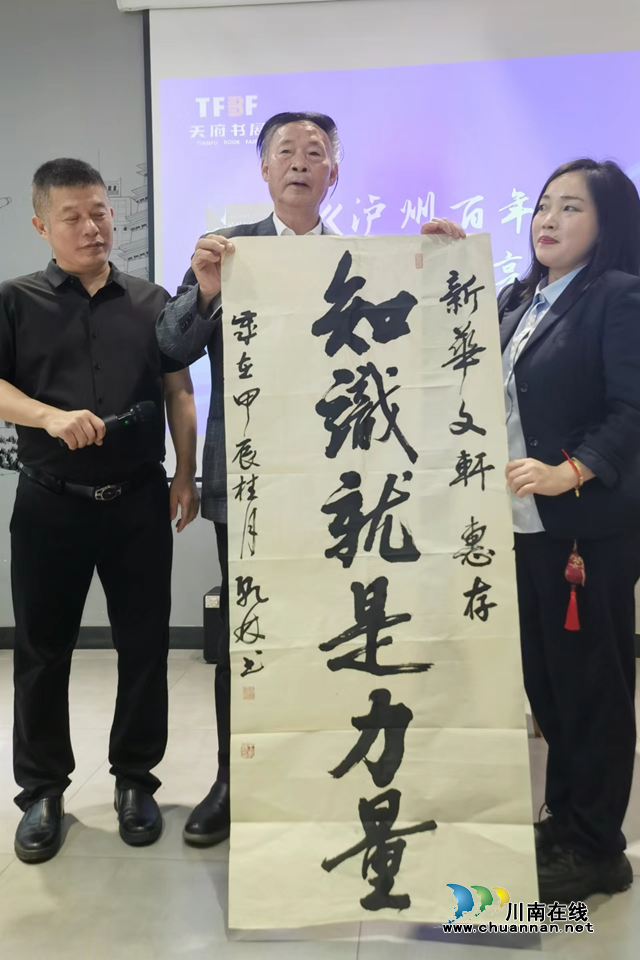 TFBF
天府书展
TIANFU BOOK FAIR
《泸州百年
享
新華文軒 惠存
知識就是力量
歲在甲辰桂月
川南在线
www.chuannan.net